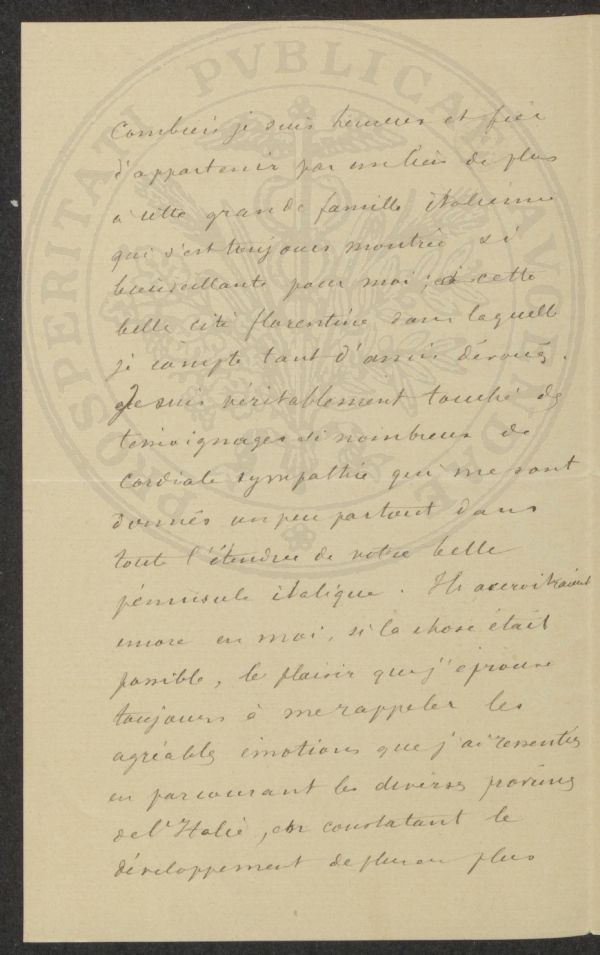 PROSPERITATI PVBLICAE
Combien je suis heureux et fier
d'appartenir par un lien de plus
à cette grande famille italienne
qui s'est toujours montrée si
bienveillante pour moi ; et cette
belle cité florentine dans laquelle
je compte tant d'amis dévoués.
Je suis véritablement touché des
témoignages si nombreux de
cordiale sympathie qui me sont
donnés un peu partout dans
toute l'étendue de votre belle
péninsule italique. Ils accroitraient
encore en moi, si la chose était
possible, le plaisir que j'éprouve
toujours à me rappeler les
agréables émotions que j'ai ressenties
en parcourant les diverses
de l'Italie, en constatant le
développement de plus en plus